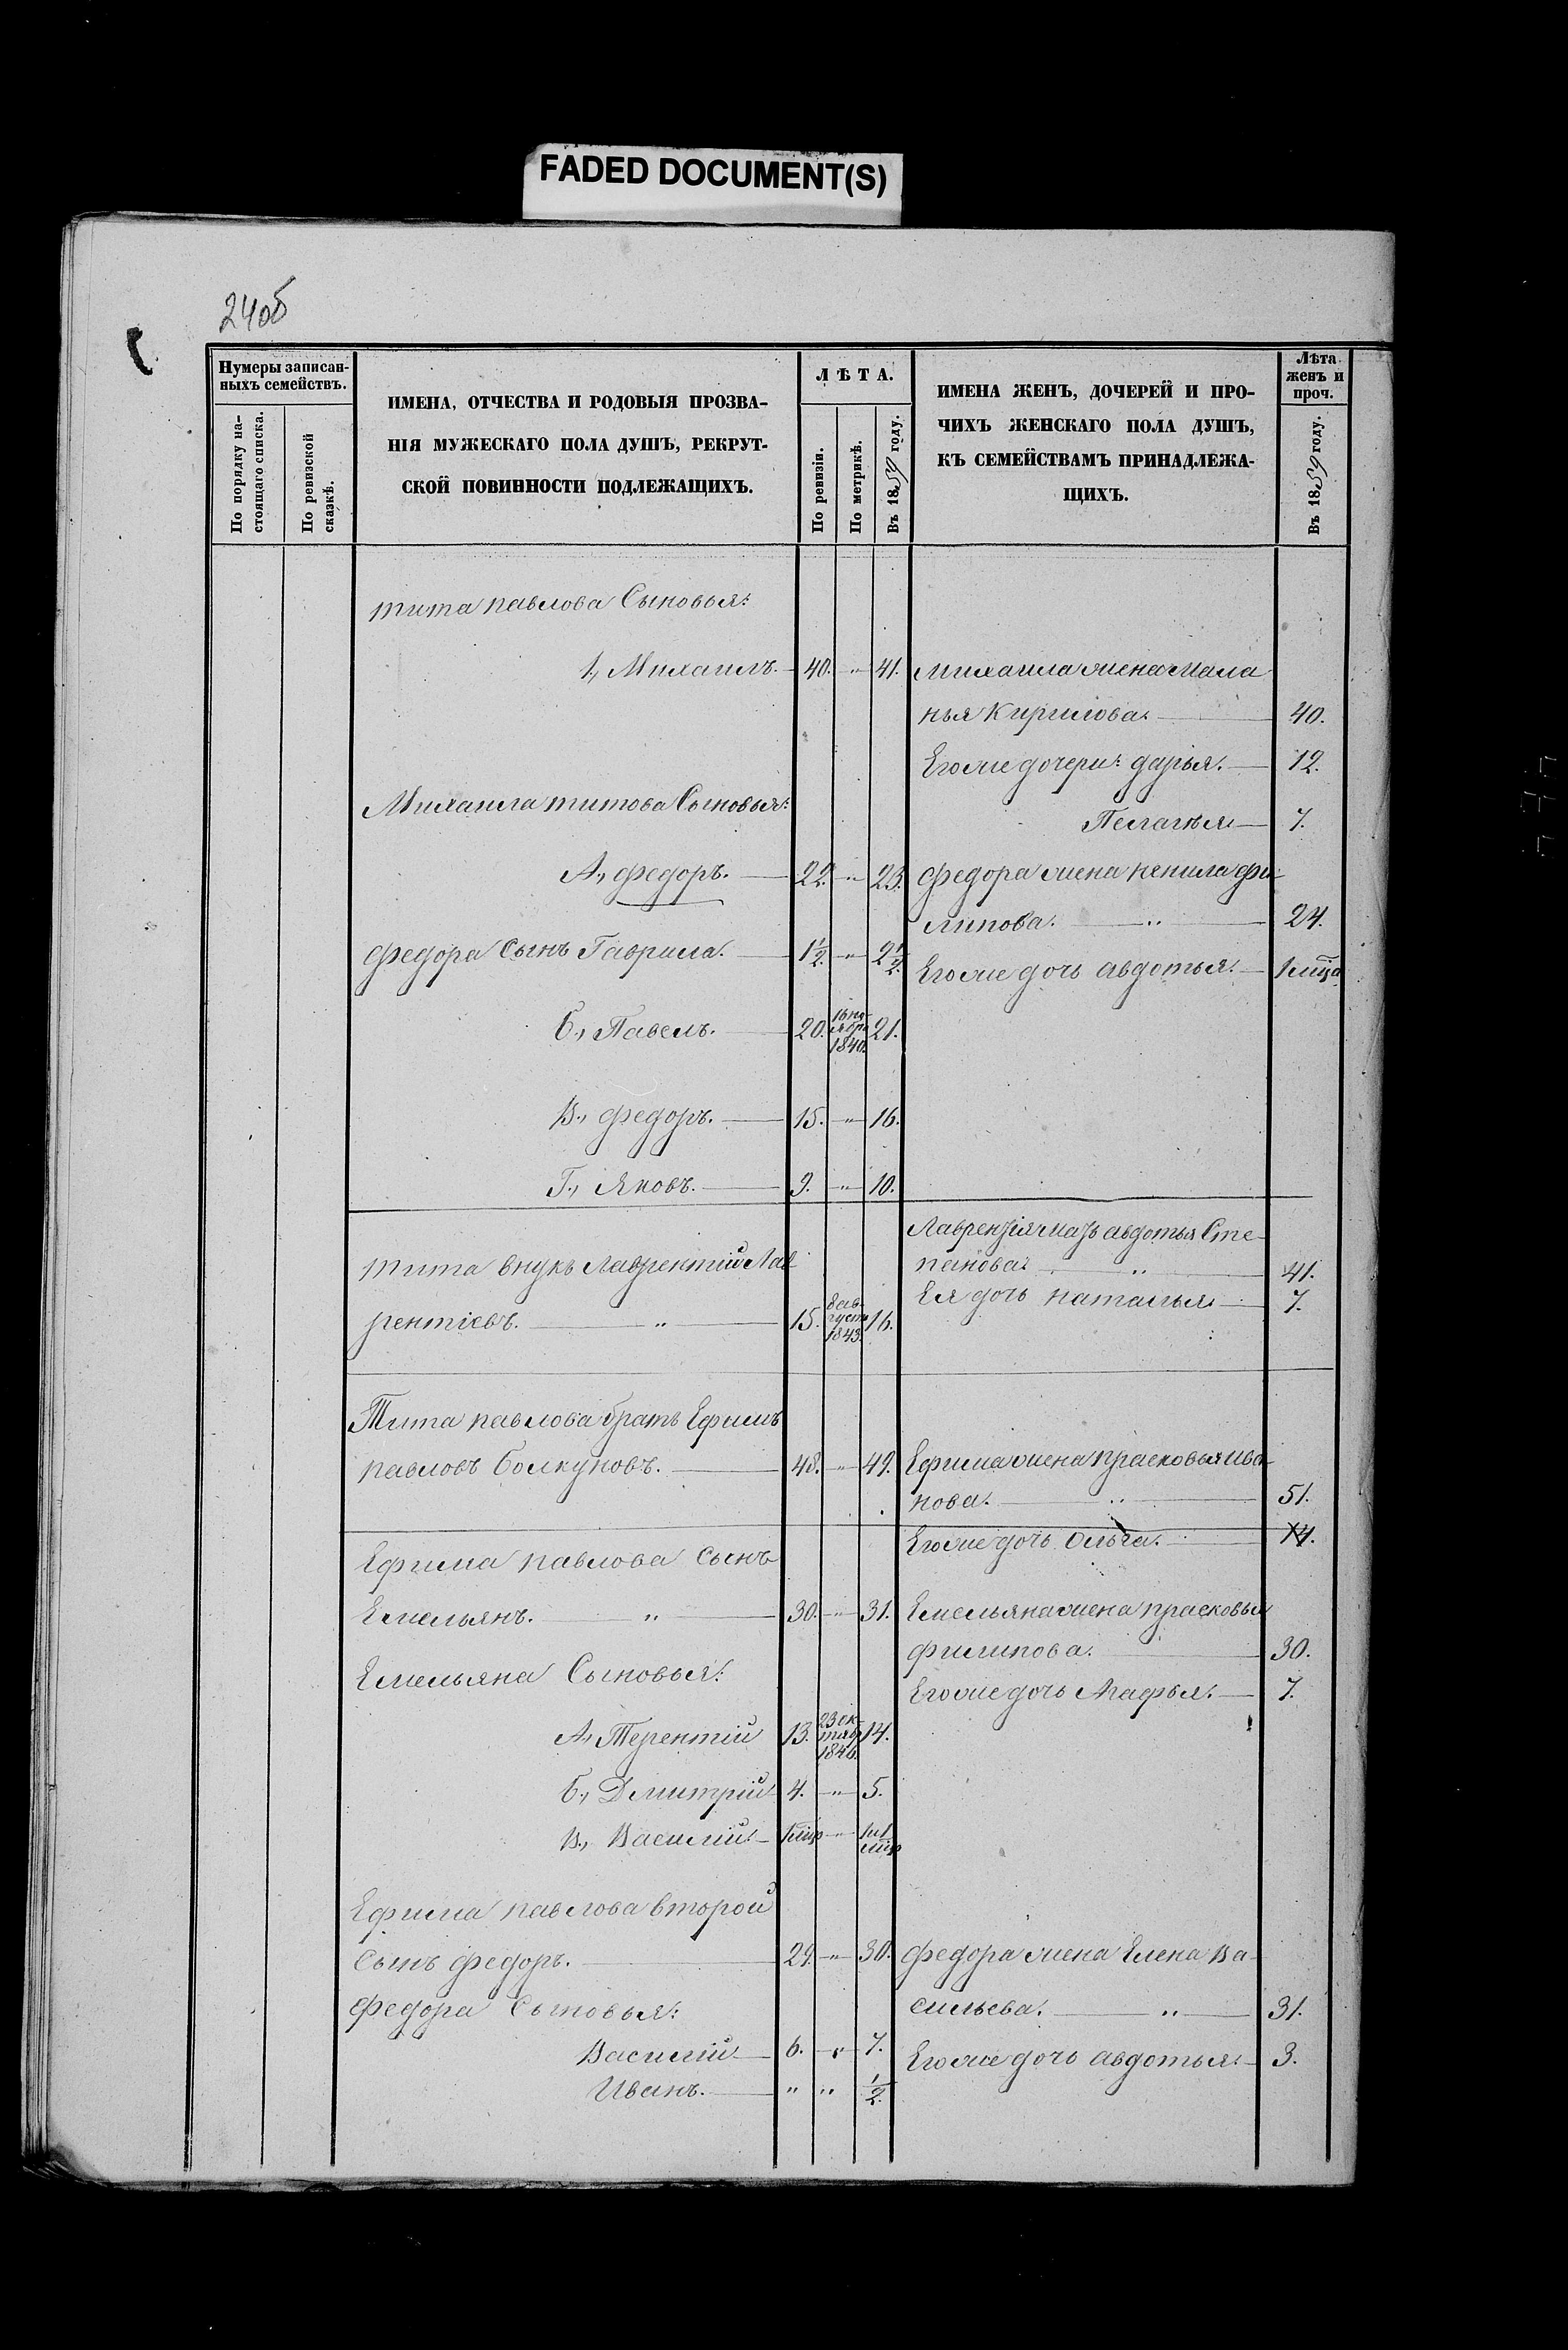 FADED DOCUMENT(S)
24об
Нумеры записан-
ныхъ семействъ.
По порядку на-
стоящаго списка.
По ревизской
сказкѣ.
ИМЕНА, ОТЧЕСТВА И РОДОВЫЯ ПРОЗВА-
НІЯ МУЖЕСКАГО ПОЛА ДУШЪ, РЕКРУТ-
СКОЙ ПОВИННОСТИ ПОДЛЕЖАЩИХЪ.
ЛѢТА.
По ревизіи.
По метрикѣ.
Въ 1859 году.
ИМЕНА ЖЕНЪ, ДОЧЕРЕЙ И ПРО-
ЧИХЪ ЖЕНСКАГО ПОЛА ДУШЪ,
КЪ СЕМЕЙСТВАМЪ ПРИНАДЛЕЖА-
ЩИХЪ.
Лѣта
женъ и
проч.
Въ 1859 году.
тита павлова Сыновья:
1., Михаилъ. 40. " 41. Михаила жена мала
нья Кирилова. 40.
Его же дочери: дарья. 12.
Михаила титова Сыновья:
Пелагѣя 7.
А., федоръ. 22. " 23. федора жена ненила фи-
липова. " 24.
федора Сынъ Гаврила. 1½. " 2½. Его же дочь авдотья. 1 мца
Б., Павелъ. 20. 16 но-
ября
1840. 21.
В., федоръ. 15. " 16.
Г., Яковъ. 9. " 10.
Лаврентія мать авдотья Сте-
панова. " 41.
тита внукъ Лаврентій Лав
Ея дочь наталья. 7.
рентіевъ. " 15. 8 ав-
густа
1843. 16.
Тита павлова братъ Ефимъ
павловъ Болкуновъ. 48. " 49. Ефима жена прасковья ива-
нова. " 51.
Его же дочь Ольга. 14.
Ефима павлова сынъ
Емельянъ. " 30. " 31. Емельяна жена прасковья
филипова. 30.
Емельяна Сыновья:
Его же дочь Агафья. 7.
А., Терентій 13. 23 ок-
тябр
1846. 14.
Б., Дмитрій 4. " 5.
В., Василій
Ефима павлова второй
сынъ федоръ. 29. " 30. федора жена Елена Ва-
сильева. " 31.
федора Сыновья:
Василій 6. " 7. Его же дочь авдотья. 3.
Иванъ. " " ½.